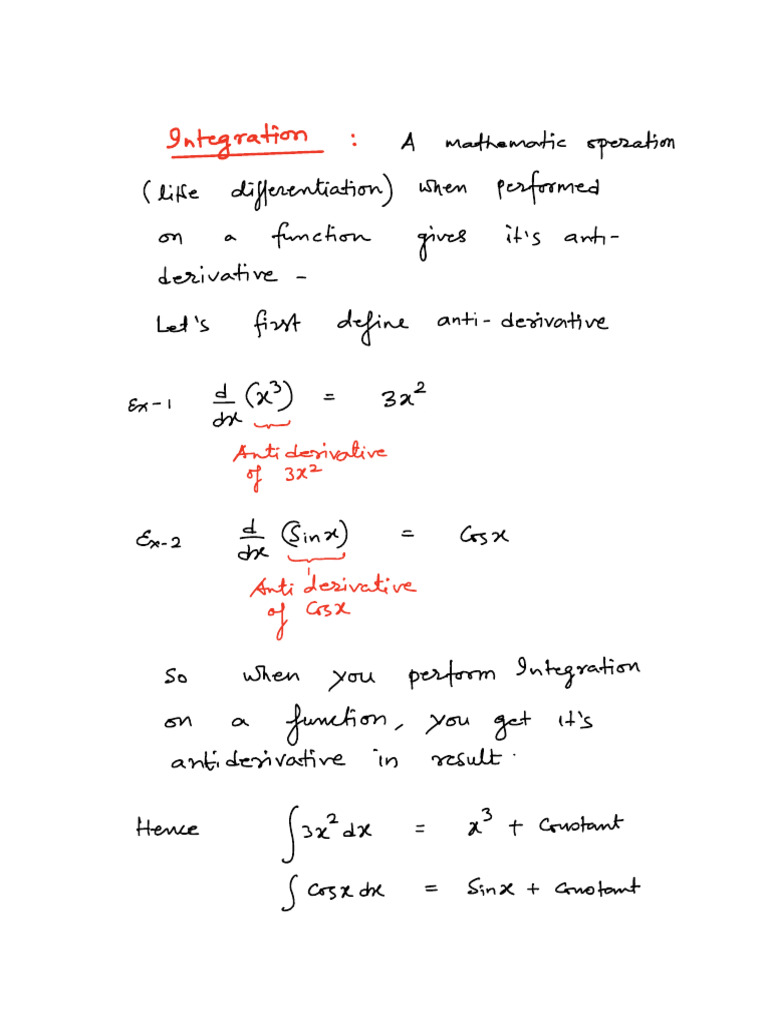 Integration : A mathematic operation
(like differentiation) when performed
on a function gives it's anti-
derivative -
Let's first define anti-derivative
Ex-1 d/dx (x³) = 3x²
Antiderivative
of 3x²
Ex-2 d/dx (Sinx) = Cosx
Anti derivative
of Cosx
So when you perform Integration
on a function, you get it's
antiderivative in result.
Hence ∫3x²dx = x³ + Constant
∫Cosx dx = Sinx + Constant